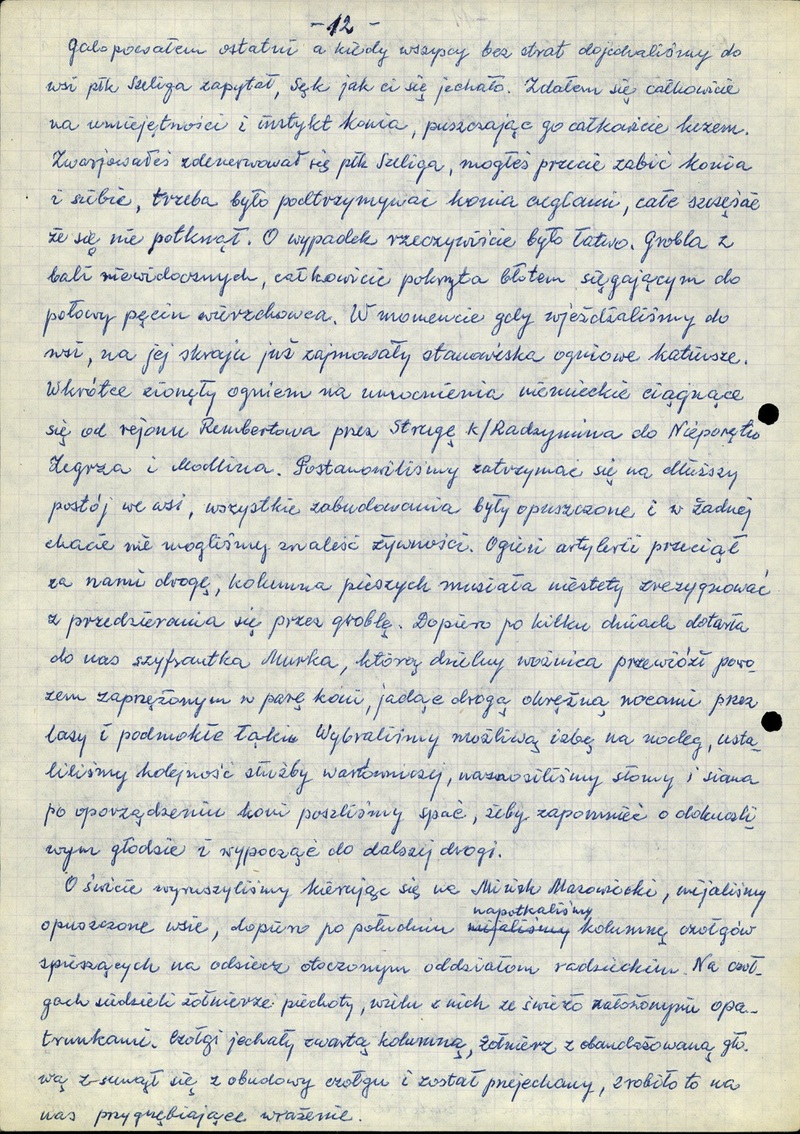 - 12 -
Galopowałem ostatni a kiedy wszyscy bez strat dojechaliśmy do
wsi płk Szeliga zapytał, Sęk jak ci się jechało. Zdałem się całkowicie
na umiejętności i instykt konia, puszczając go całkowicie luzem.
Zwarjowałeś zdenerwował się płk Szeliga, mogłeś przecie zabić konia
i siebie, trzeba było podtrzymywać konia cuglami, całe szczęście
że się nie potknął. O wypadek rzeczywiście było łatwo. Grobla z
bali niewidocznych, całkowicie pokryta błotem sięgającym do
połowy pęcin wierzchowca. W momencie gdy wjeżdżaliśmy do
wsi, na jej skraju już zajmowały stanowiska ogniowe katiusze.
Wkrótce zionęły ogniem na umocnienia niemieckie ciągnące
się od rejonu Rembertowa przez Strugę k/Radzymina do Nieporętu
Zegrza i Modlina. Postanowiliśmy zatrzymać się na dłuższy
postój we wsi, wszystkie zabudowania były opuszczone i w żadnej
chacie nie mogliśmy znaleść żywności. Ogień artylerii przeciął
za nami drogę, kolumna pieszych musiała niestety zrezygnować
z przedzierania się przez groblę. Dopiero po kilku dniach dotarła
do nas szyfrantka Murka, którą dzielny woźnica przewiózł powo-
zem zaprzężonym w parę koni, jadąc drogą okrężną nocami przez
lasy i podmokłe łąki. Wybraliśmy możliwą izbę na nocleg, usta-
liliśmy kolejność służby wartowniczej, naznosiliśmy słomy i siana
po oporządzeniu koni poszliśmy spać, żeby zapomnieć o dokuczli-
wym głodzie i wypocząć do dalszej drogi.
O świcie wyruszyliśmy kierując się na Mińsk Mazowiecki, mijaliśmy
opuszczone wsie, dopiero po południu mijaliśmy napotkaliśmy kolumnę czołgów
spieszących na odsiecz otoczonym oddziałom radzieckim. Na czoł-
gach siedzieli żołnierze piechoty, wielu z nich ze świeżo nałożonymi opa-
trunkami. Czołgi jechały zwartą kolumną, żołnierz z obandażowaną gło-
wą zsunął się z obudowy czołgu i został przejechany, zrobiło to na
nas przygnębiające wrażenie.